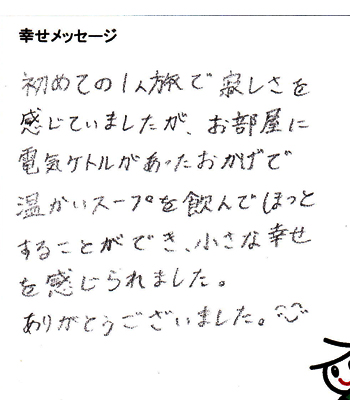 幸せメッセージ
初めての1人旅で寂しさを
感じていましたが、お部屋に
電気ケトルがあったおかげで
温かいスープを飲んでほっと
することができ、小さな幸せ
を感じられました。
ありがとうございました。